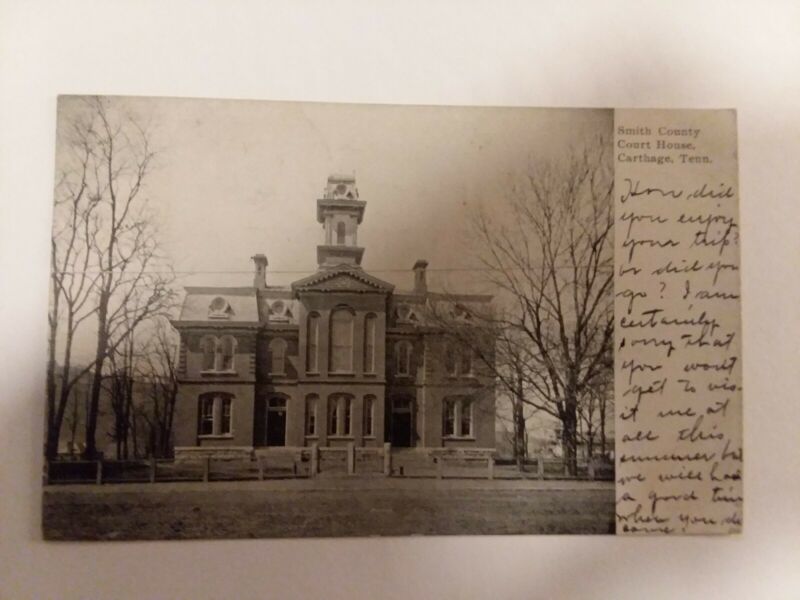 Smith County
Court House,
Carthage, Tenn.
How did
you enjoy
your trip?
or did you
go? I am
certainly
sorry that
you wont
get to vis-
it me at
all this
summer but
we will have
a good time
when you do
come!